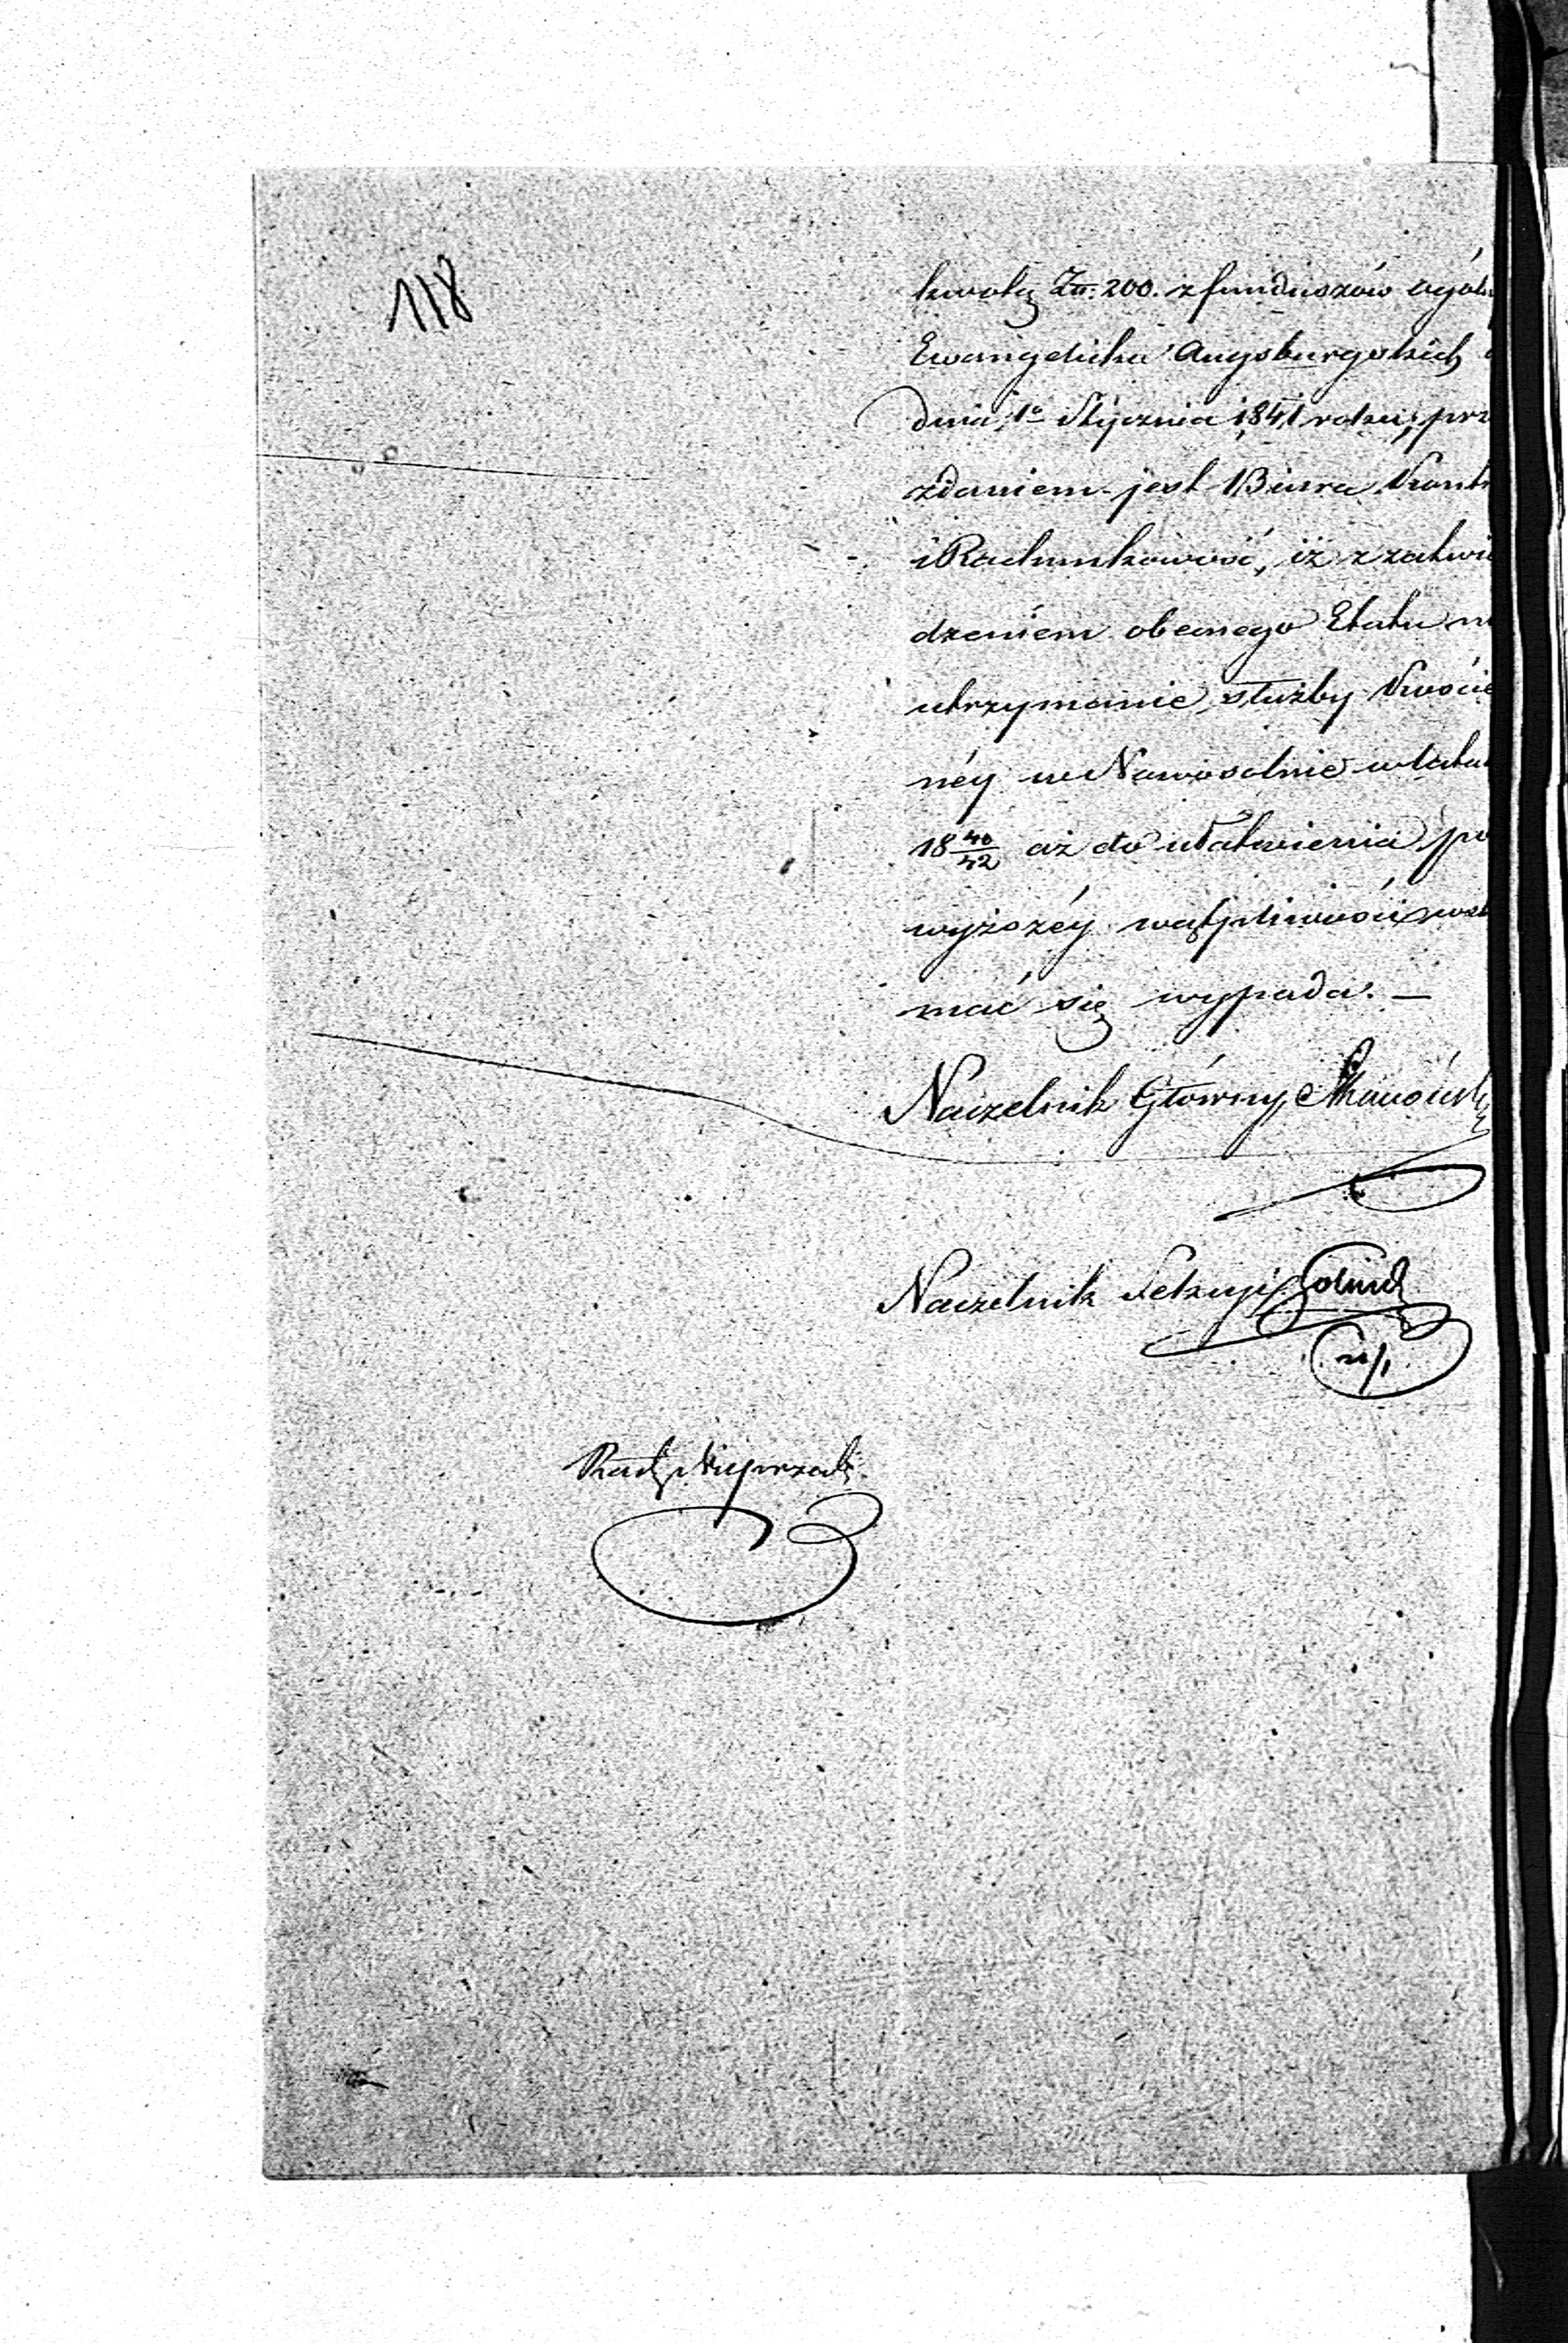 118
kwotę Zł: 200. z funduszów ogóln
Ewangelicko Augsburgskich
dnia 1º Stycznia 1841 roku; prz
zdaniem jest Biura Kontr
i Rachunkowość, iż z zatwie
dzeniem obecnego Etatu n
utrzymanie służby Kośció
néy w Nowosolnie w latac
18 40/42 aż do ułatwienia po
wyższéy wątpliwości wst
mać się wypada. —
Naczelnik Główny
Naczelnik Sekcyi